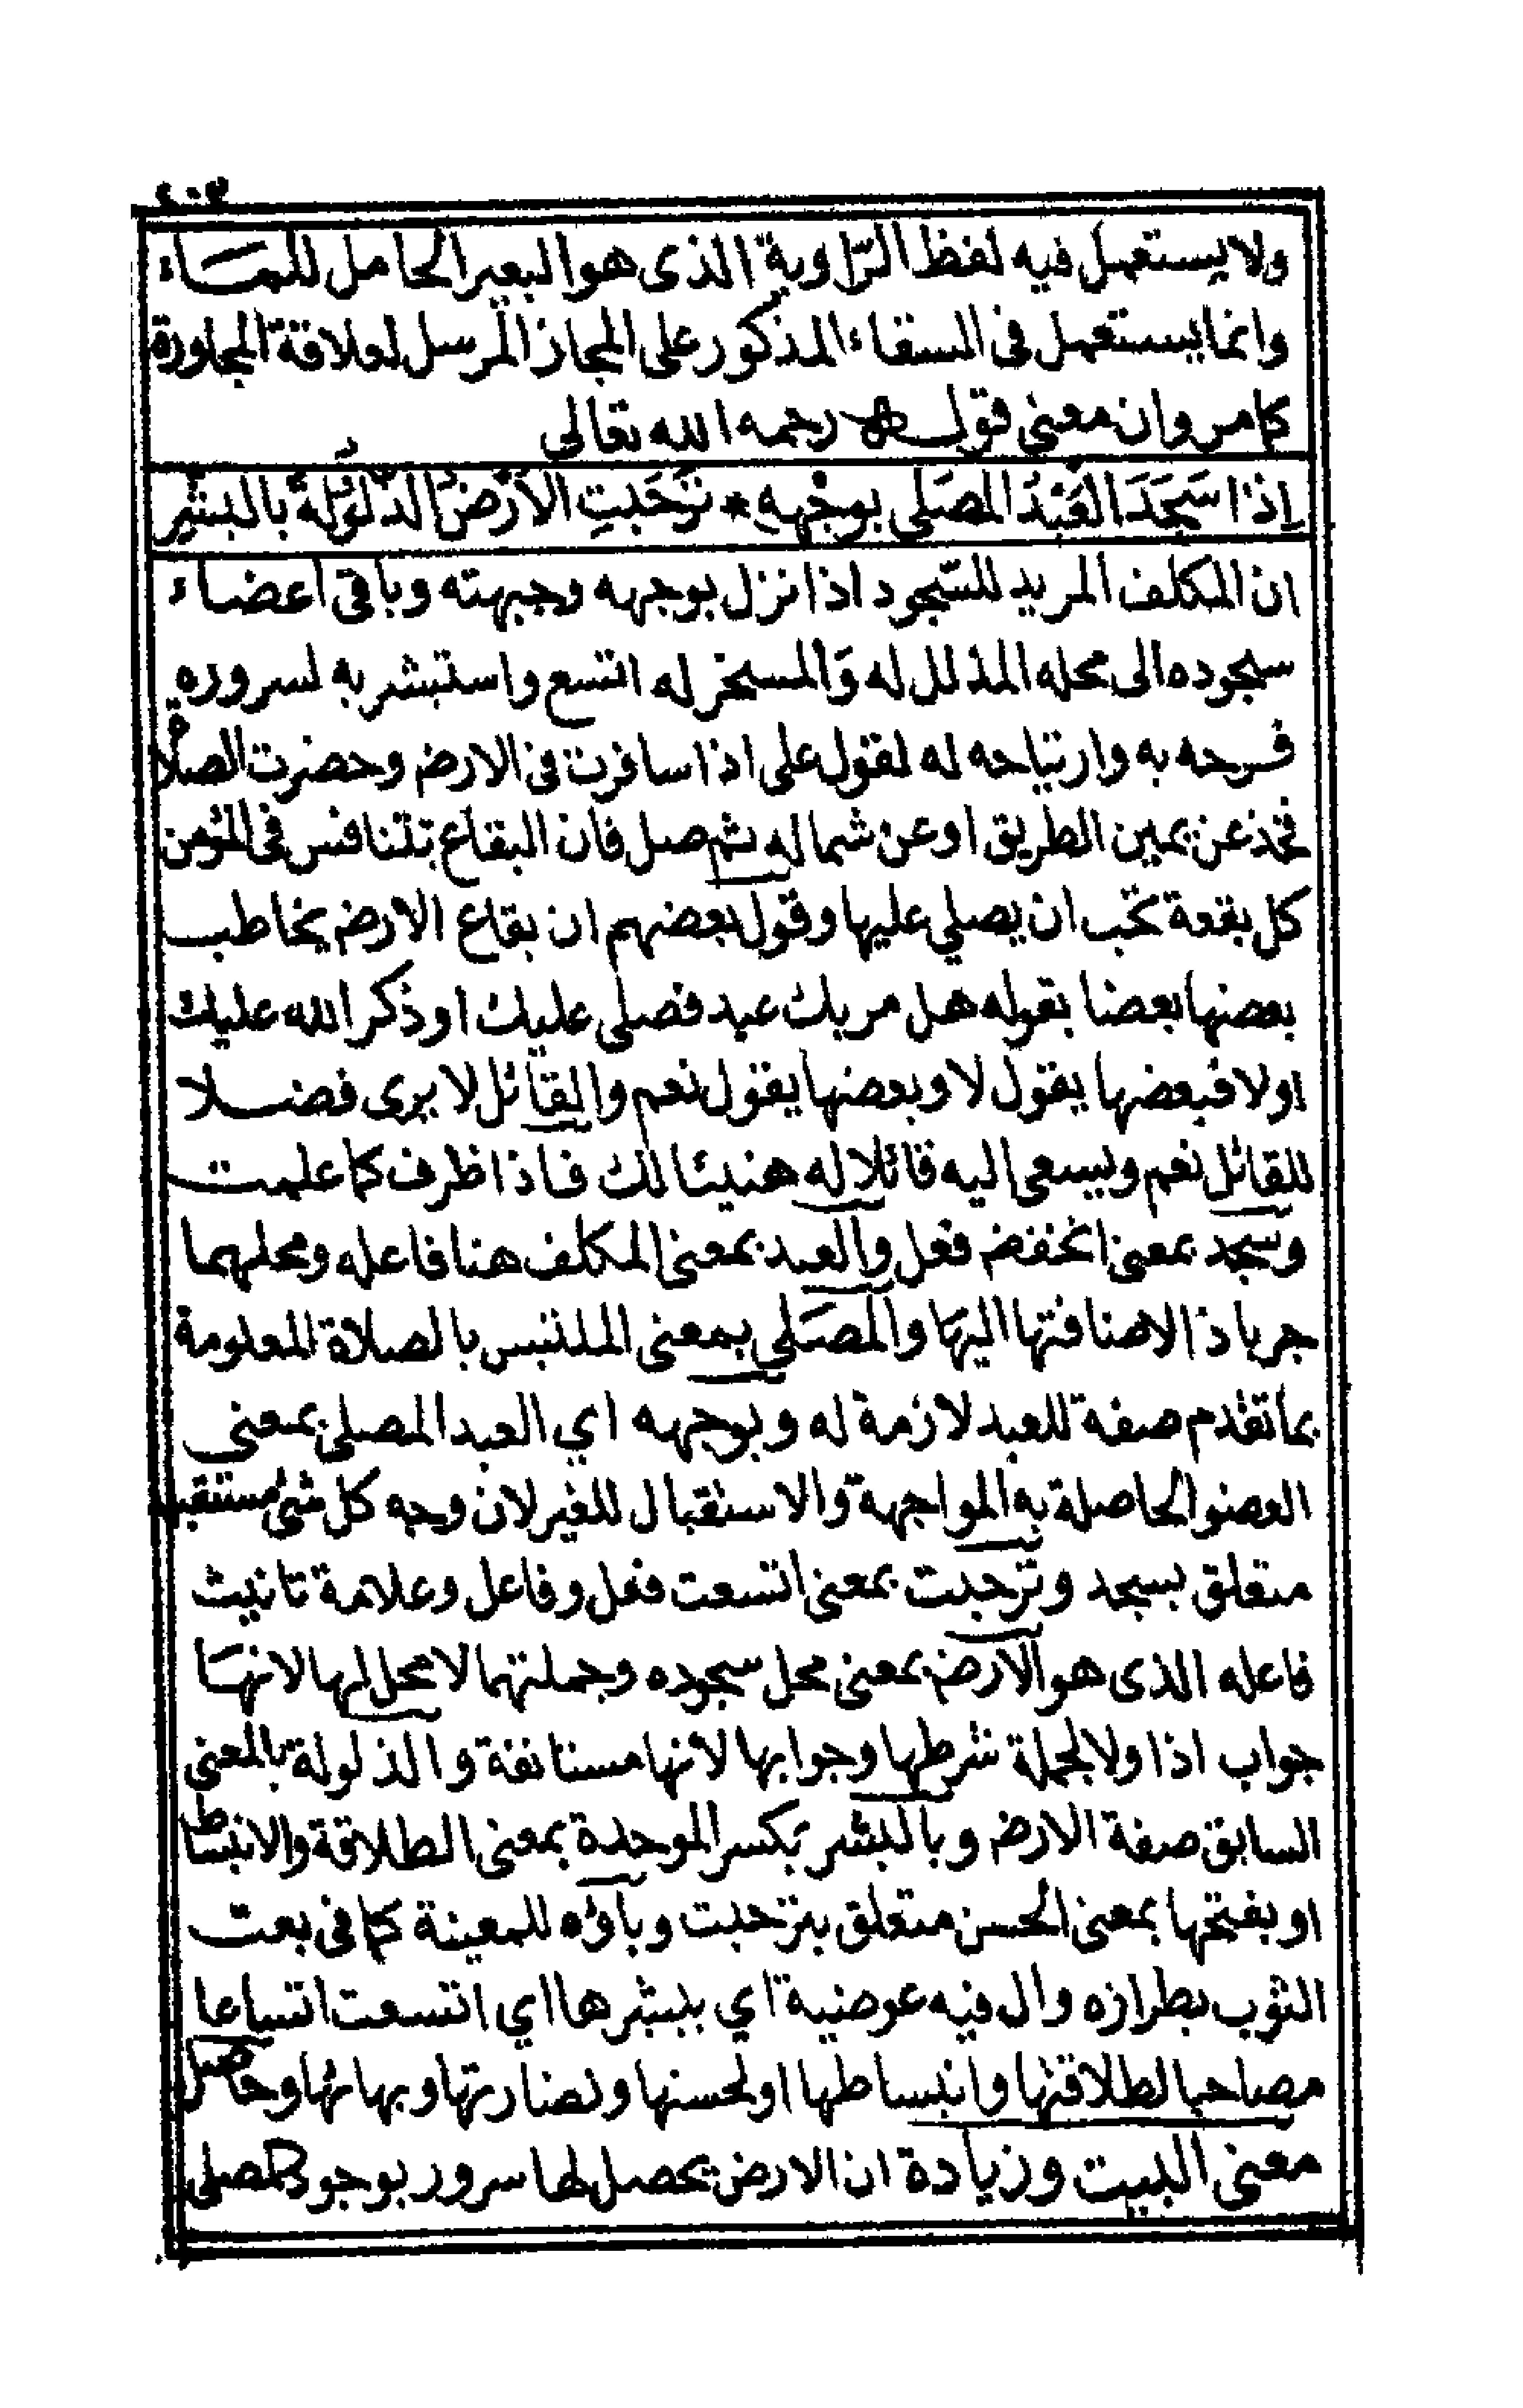 ٤٠٣
ولا يستعمل فيه لفظ الرّاوية الذى هو البعير الحامل للمــاء
وانما يستعمل فى السقاء المذكور على المجاز المرسل لعلاقة المجاورة
كما مر وان معنى قوله رحمه الله تعالى
إِذا سَجَدَ العَبْدُ المصَلى بوجْهِهِ * تَرَحَّبَتِ الاَرْضُ الذَّلُولَةُ بالبشْرِ
ان المكلف المريد للسّجود اذا نزل بوجهه وجبهته وباقى اعضاء
سجوده الى محله المذلل له وَالمسخر له اتسع واستبشر به لسروره
فرحه به وارتياحه له لقول على اذا سافرت فى الارض وحضرت الصلاة
فخذ عن يمين الطريق او عن شماله ثم صل فان البقاع تتنافس فى المؤمن
كل بقعة تحب ان يصلي عليها وقول بعضهم ان بقاع الارض يخاطب
بعضها بعضا بقوله هل مر بك عبد فصلى عليك او ذكر الله عليك
اولا فبعضها يقول لا وبعضها يقول نعم والقائل لا يرى فضــلا
للقائل نعم ويسعى اليه قائلا له هنيئا لك فاذا ظرف كما علمت
وسجد بمعنى انخفض فعل والعبد بمعنى المكلف هنا فاعله ومحلهما
جر باذا لاضافتها اليهَا والمصَلي بمعنى الملتبس بالصلاة المعلومة
بما تقدم صفة للعبد لازمة له وبوجهه اي العبد المصلى بمعنى
العضو الحاصلة به المواجهة والاستقبال للغير لان وجه كل شئ مستقبله
متعلق بسجد وترحبت بمعنى اتسعت فعل وفاعل وعلامة تانيث
فاعله الذى هو الارض بمعنى محل سجوده وجملتهما لا محل لها لانهـَا
جواب اذا ولا لجملة شرطها وجوابها لأنها مستانفة والذلولة بالمعنى
السابق صفة الارض وبالبشر بكسر الموحدة بمعنى الطلاقة والانبساط
او بفتحها بمعنى الحسن متعلق بترحبت وباؤه للمعية كما فى بعت
الثوب بطرازه وال فيه عوضية اي ببشرها اي اتسعت اتساعا
مصاحبا لطلاقتها وانبساطها او لحسنها ونضارتها وبهائها وحاصل
معنى البيت وزيادة ان الارض يحصل لها سرور بوجود المصلى